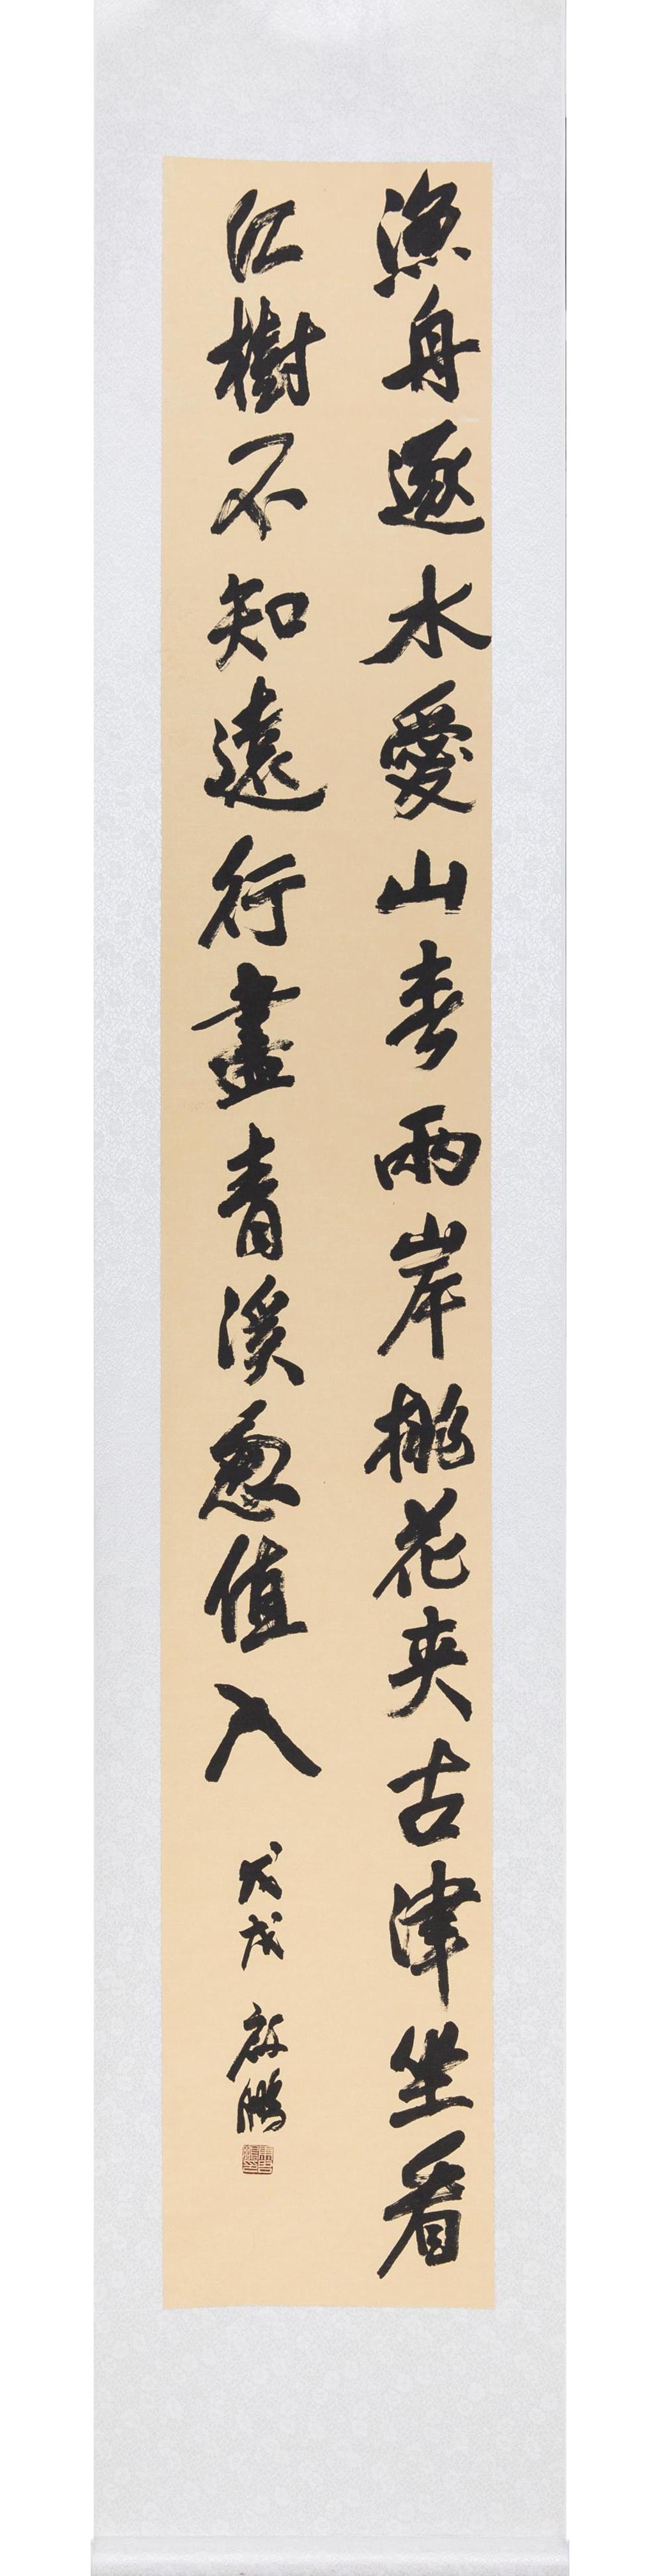 渔舟逐水愛山春兩岸桃花夹古津坐看
红樹不知遠行盡青溪忽值人
戊戌 啟鵬